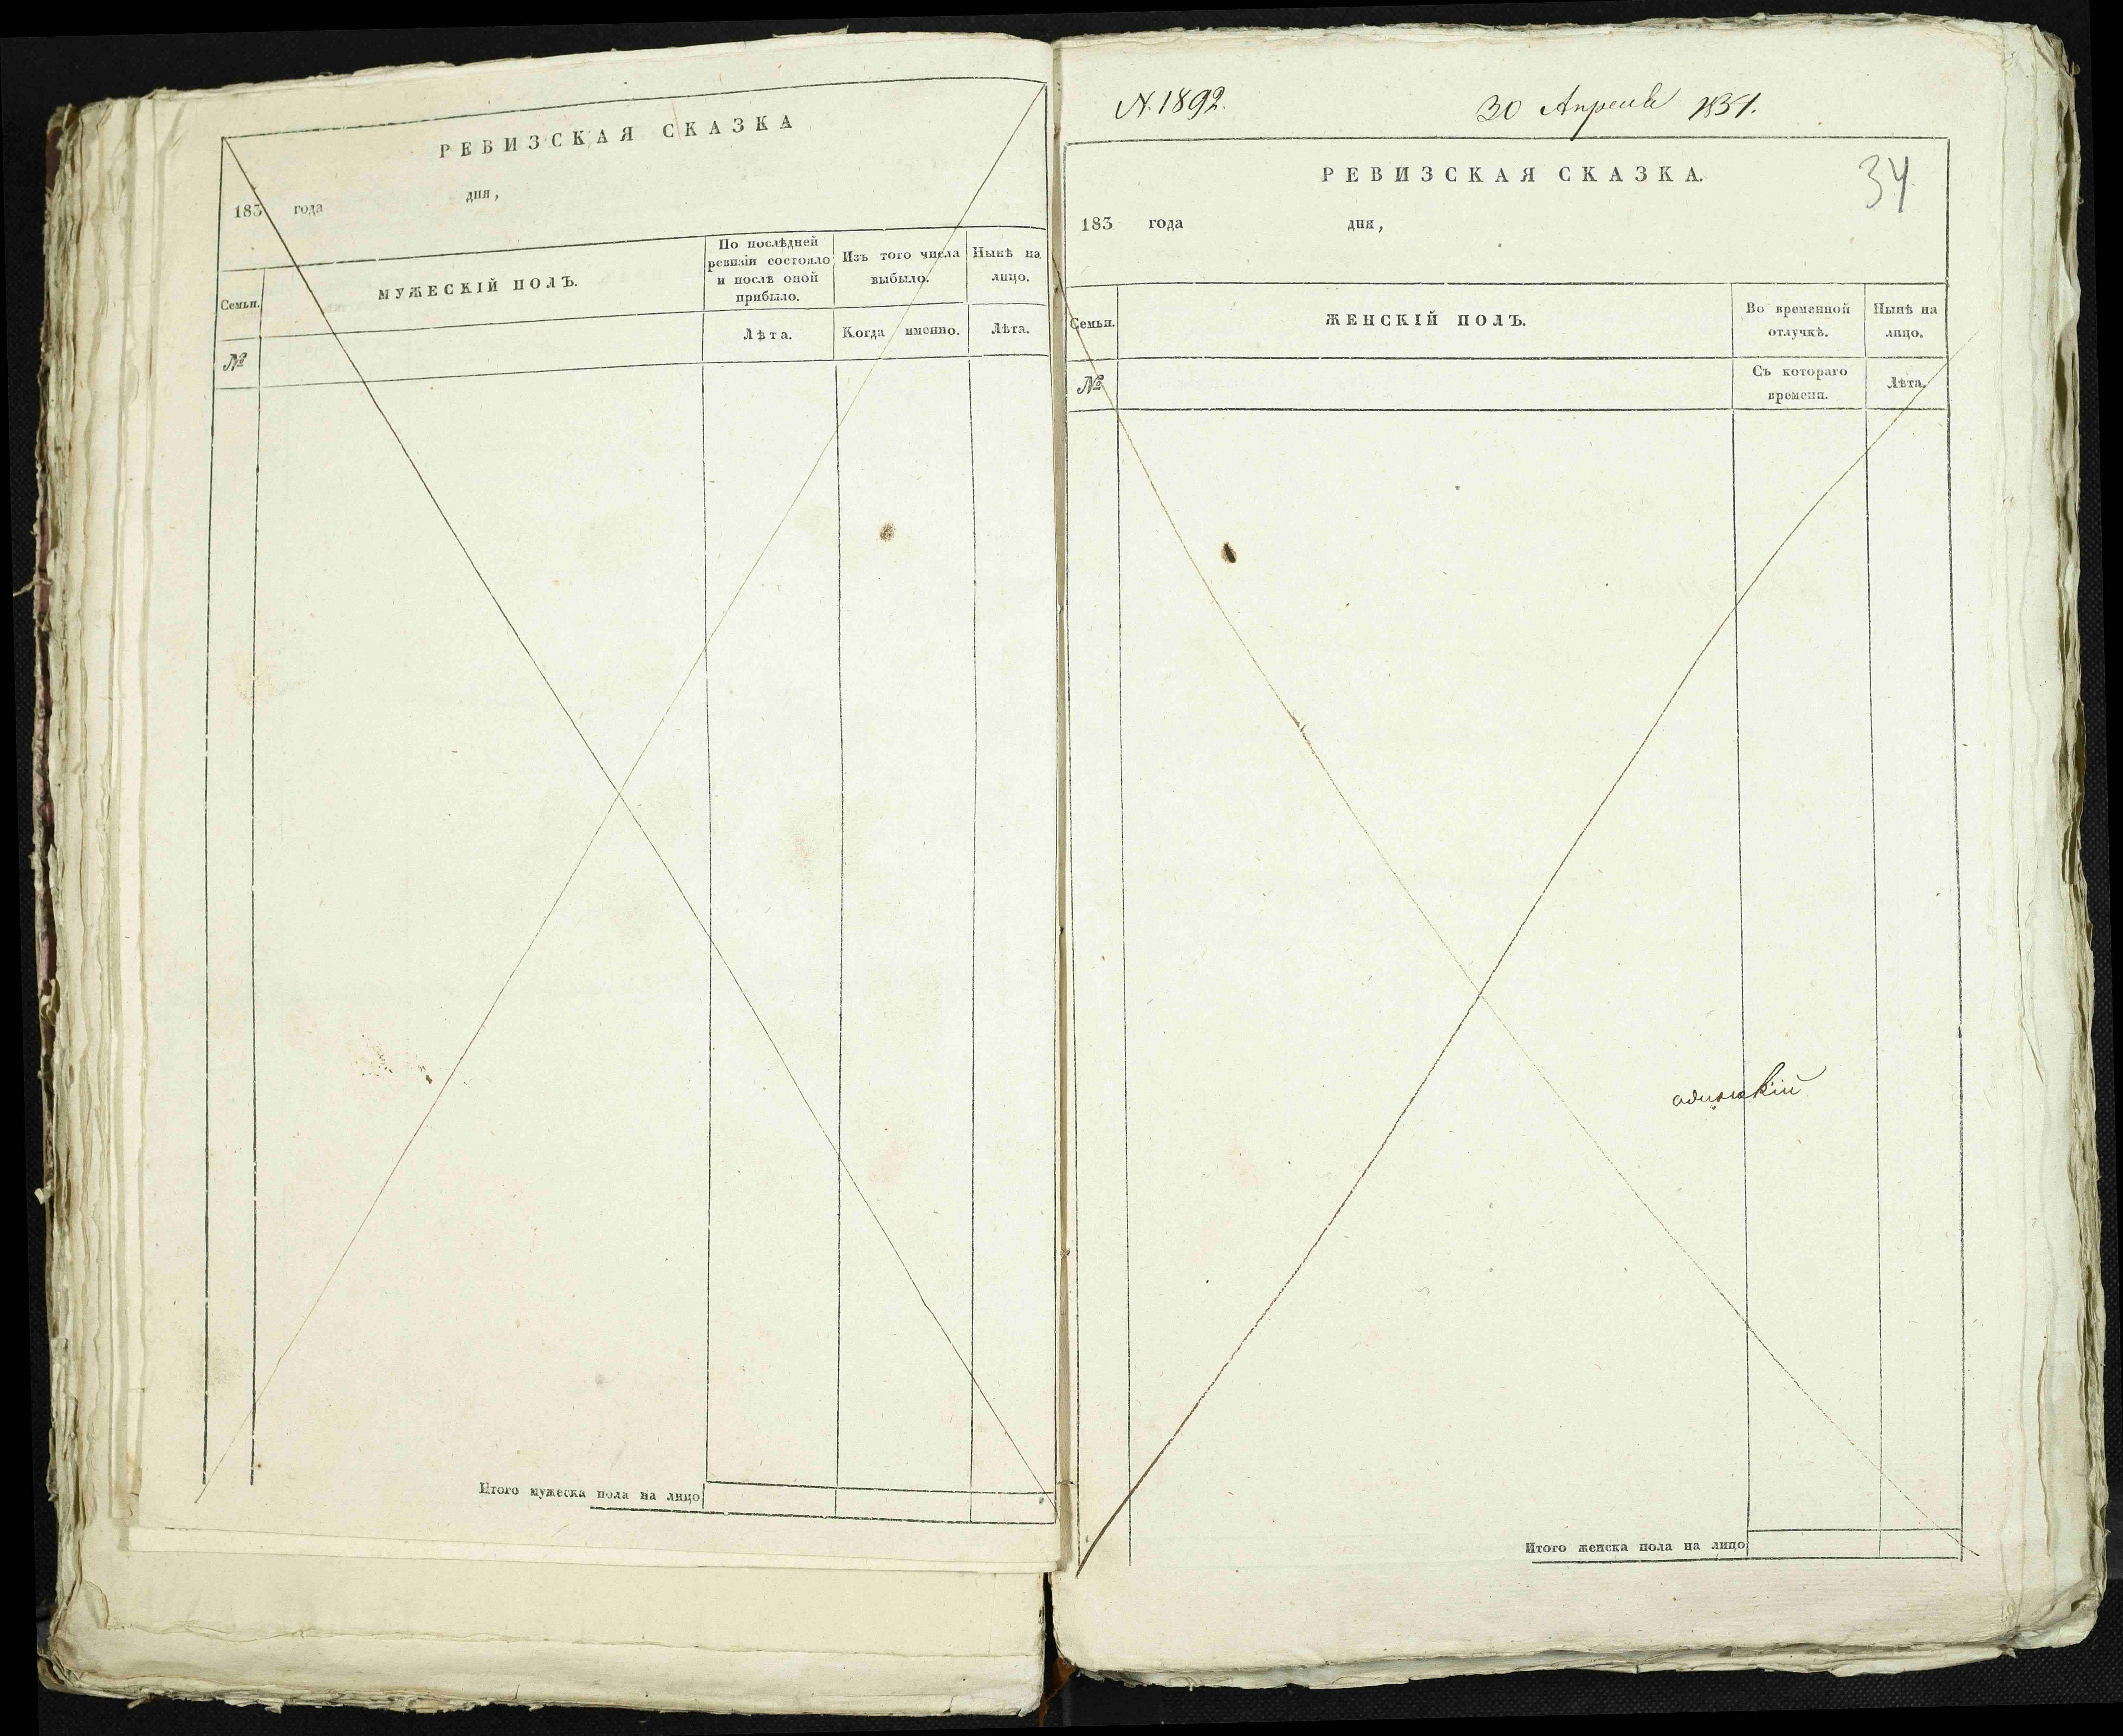 РЕВИЗСКАЯ СКАЗКА
183 года дня,
Семьи.
МУЖЕСКІЙ ПОЛЪ.
По послѣдней
ревизіи состояло
и послѣ оной
прибыло.
Изъ того числа
выбыло.
Нынѣ на
лицо.
№
Лѣта.
Когда именно.
Лѣта.
Итого мужеска пола на лицо
N. 1892.
30 Апреля
34
РЕВИЗСКАЯ СКАЗКА.
183 года дня,
Семьи.
ЖЕНСКІЙ ПОЛЪ.
Во временной
отлучкѣ.
Нынѣ на
лицо.
№
Съ котораго
времени.
Лѣта.
Итого женска пола на лицо